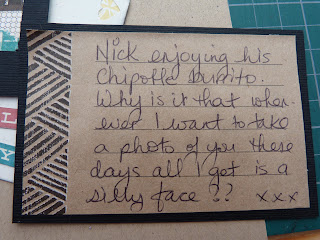 Nick enjoying his
Chipotle burrito.
Why is it that when-
ever I want to take
a photo of you these
days all I get is a
silly face ?? xxx